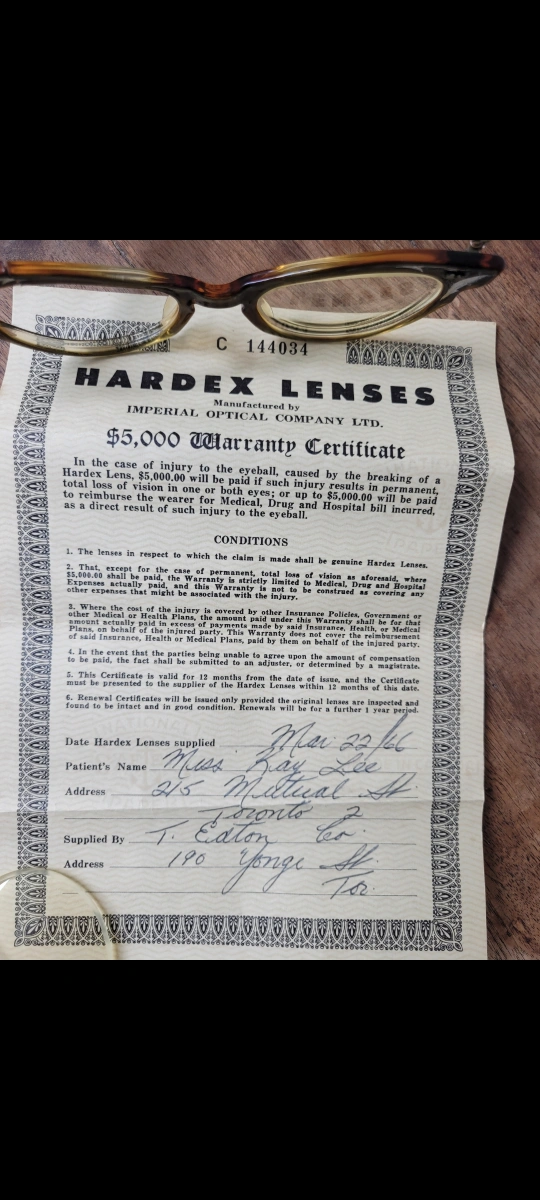 C 144034
HARDEX LENSES
Manufactured by
IMPERIAL OPTICAL COMPANY LTD.
$5,000 Warranty Certificate
In the case of injury to the eyeball, caused by the breaking of a
Hardex Lens, $5,000.00 will be paid if such injury results in permanent,
total loss of vision in one or both eyes; or up to $5,000.00 will be paid
to reimburse the wearer for Medical, Drug and Hospital bill incurred,
as a direct result of such injury to the eyeball.
CONDITIONS
1. The lenses in respect to which the claim is made shall be genuine Hardex Lenses.
2. That, except for the case of permanent, total loss of vision as aforesaid, where
$5,000.00 shall be paid, the Warranty is strictly limited to Medical, Drug and Hospital
Expenses actually paid, and this Warranty is not to be construed as covering any
other expenses that might be associated with the injury.
3. Where the cost of the injury is covered by other Insurance Policies, Government or
other Medical or Health Plans, the amount paid under this Warranty shall be for that
amount actually paid in excess of payments made by said Insurance, Health, or Medical
Plans, on behalf of the injured party. This Warranty does not cover the reimbursement
of said Insurance, Health or Medical Plans, paid by them on behalf of the injured party.
4. In the event that the parties being unable to agree upon the amount of compensation
to be paid, the fact shall be submitted to an adjuster, or determined by a magistrate.
5. This Certificate is valid for 12 months from the date of issue, and the Certificate
must be presented to the supplier of the Hardex Lenses within 12 months of this date.
6. Renewal Certificates will be issued only provided the original lenses are inspected and
found to be intact and in good condition. Renewals will be for a further 1 year period.
Date Hardex Lenses supplied Mar 22/66
Patient's Name Miss Kay Lee
Address 215 Mutual St.
Toronto 2
Supplied By T. Eaton Co.
Address 190 Yonge St.
Tor.